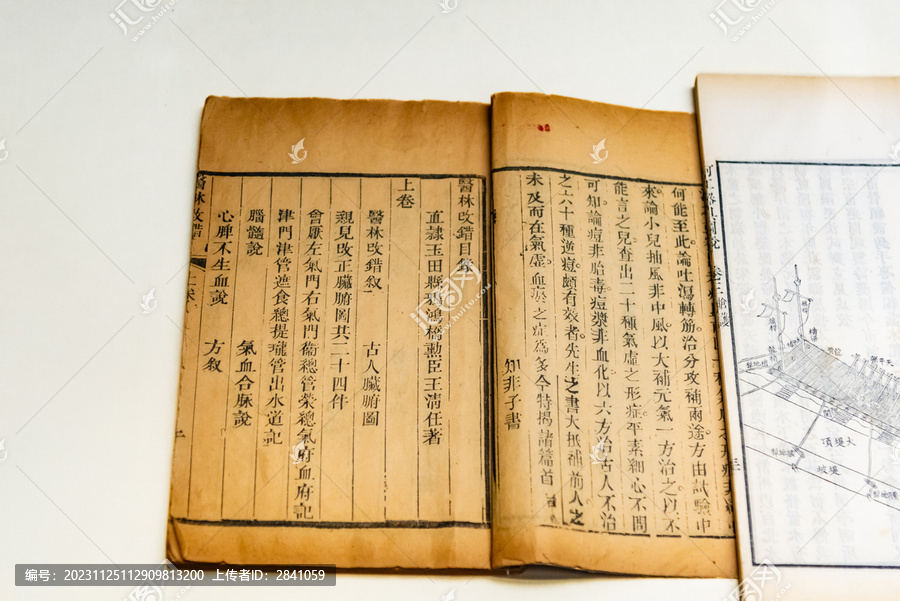 何能至此論吐瀉轉筋治分攻補兩途方由試驗中
來論小兒抽風非中風以大補元氣一方治之以不
能言之兒查出二十種氣虛之形症平素細心不問
可知論痘非胎毒痘漿非血化以六方治古人不治
之六十種逆痘頗有效者先生之書大抵補前人之
未及而在氣虛血瘀之症為多今特揭諸篇首
知非子書
醫林改錯目錄
直隸玉田縣鴉鴻橋勳臣王清任著
上卷
醫林改錯叙 古人臟腑圖
親見改正臟腑圖共二十四件
會厭左氣門右氣門衞總管榮總氣府血府記
津門津管遮食總提瓏管出水道記
腦髓說 氣血合脉說
心脾不生血說 方叙
醫林改錯
頂堤大
坡堤
編号：20231125112909813200 上传者ID：2841059